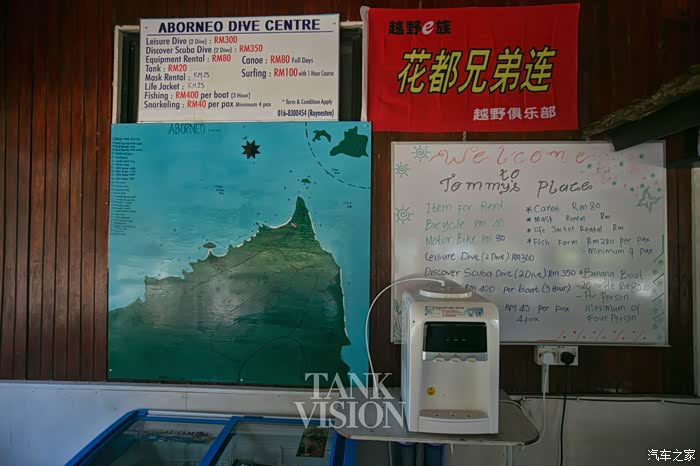 ABORNEO DIVE CENTRE
Leisure Dive (2 Dive) : RM300
Discover Scuba Dive (2 Dive) : RM350
Equipment Rental : RM80
Canoe : RM80 Full Days
Tank : RM20
Surfing : RM100 with 1 Hour Course
Mask Rental : RM25
Life Jacket : RM25
Fishing : RM400 per boat (3 Hour)
Snorkeling : RM40 per pax Minimum 4 pax
* Term & Condition Apply
016-8300454 (Raynesten)
越野e族
花都兄弟连
越野俱乐部
ABORNEO
Welcome
to
Tommy's Place
Item For Rent
Bicycle RM 40
Motor Bike RM 80
Leisure Dive (2 Dive) RM300
Discover Scuba Dive (2 Dive) RM 350
RM 400 per boat (3 Hour)
RM 40 per pax
4 pax
* Canoe RM 80
* Mask Rental RM
* life Jacket Rental RM
* Fish Farm RM280 per pax
- Minimum 4 pax
* Banana Boat
- Per Person
Minimum of
Four Person
TANK
VISION
汽车之家